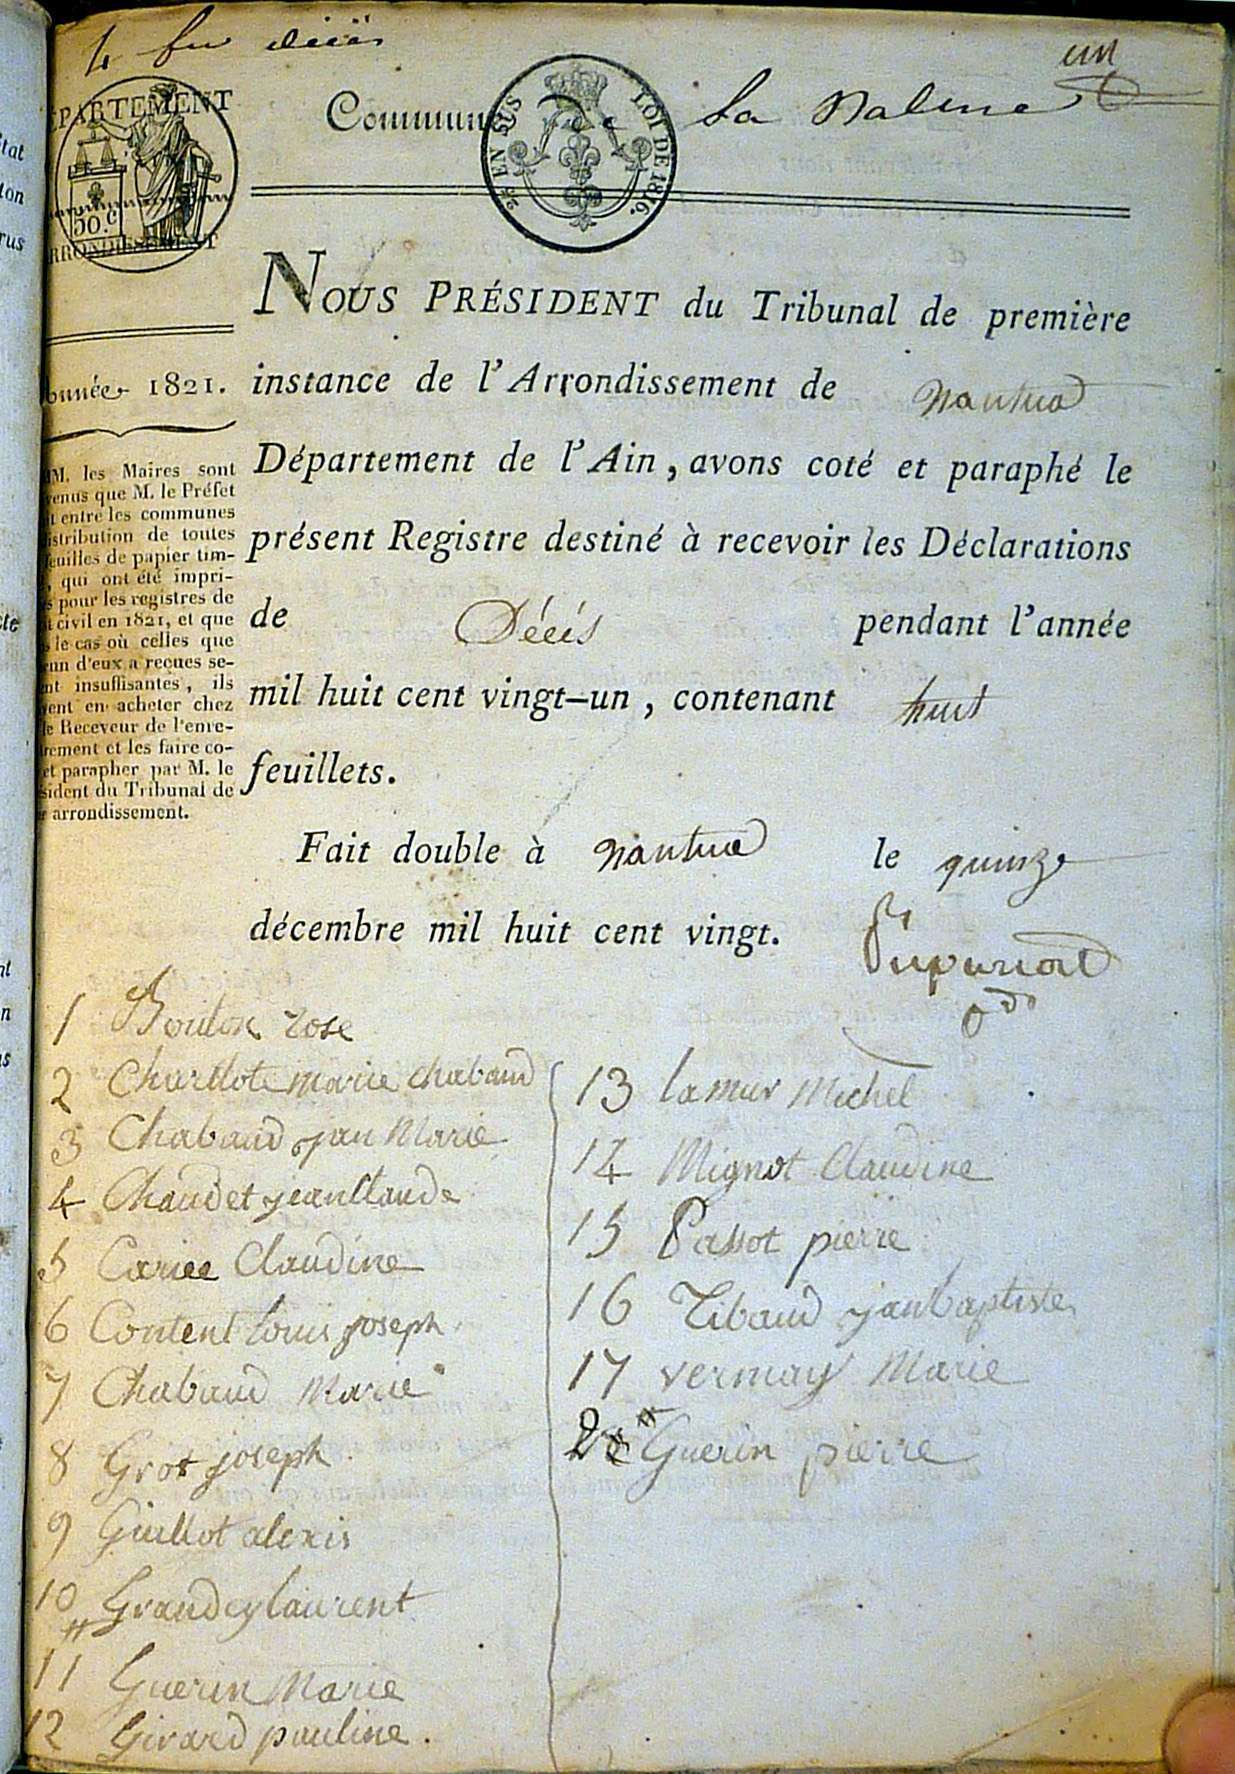 4 fu décès
un
DÉPARTEMENT
50.c
ARRONDISSEMENT
Commune de la Balme
2.e EN SUS LOI DE 1816.
NOUS PRÉSIDENT du Tribunal de première
Année 1821.
instance de l'Arrondissement de Nantua
Département de l'Ain, avons coté et paraphé le
présent Registre destiné à recevoir les Déclarations
de Décès pendant l'année
mil huit cent vingt-un, contenant huit
feuillets.
Fait double à Nantua le quinze
décembre mil huit cent vingt.
MM. les Maires sont
venus que M. le Préfet
it entre les communes
istribution de toutes
feuilles de papier tim-
, qui ont été impri-
s pour les registres de
t civil en 1821, et que
s le cas où celles que
cun d'eux a reçues se-
ent insuffisantes, ils
vent en acheter chez
le Receveur de l'enre-
trement et les faire co-
et parapher par M. le
ésident du Tribunal de
r arrondissement.
1 Bouton rose
2 Charllote marie chabaud
3 Chabaud jan Marie
4 Chaudet jean Claude
5 Cariee Claudine
6 Content Louis joseph
7 Chabaud Marie
8 Gros joseph
9 Guillot alexis
10 Grandcy laurent
11 Guerin Marie
12 Girard pauline.
13 lamur Michel
14 Mignot Claudine
15 Passot pierre
16 Tibaud jan baptiste
17 vermay Marie
Guerin pierre